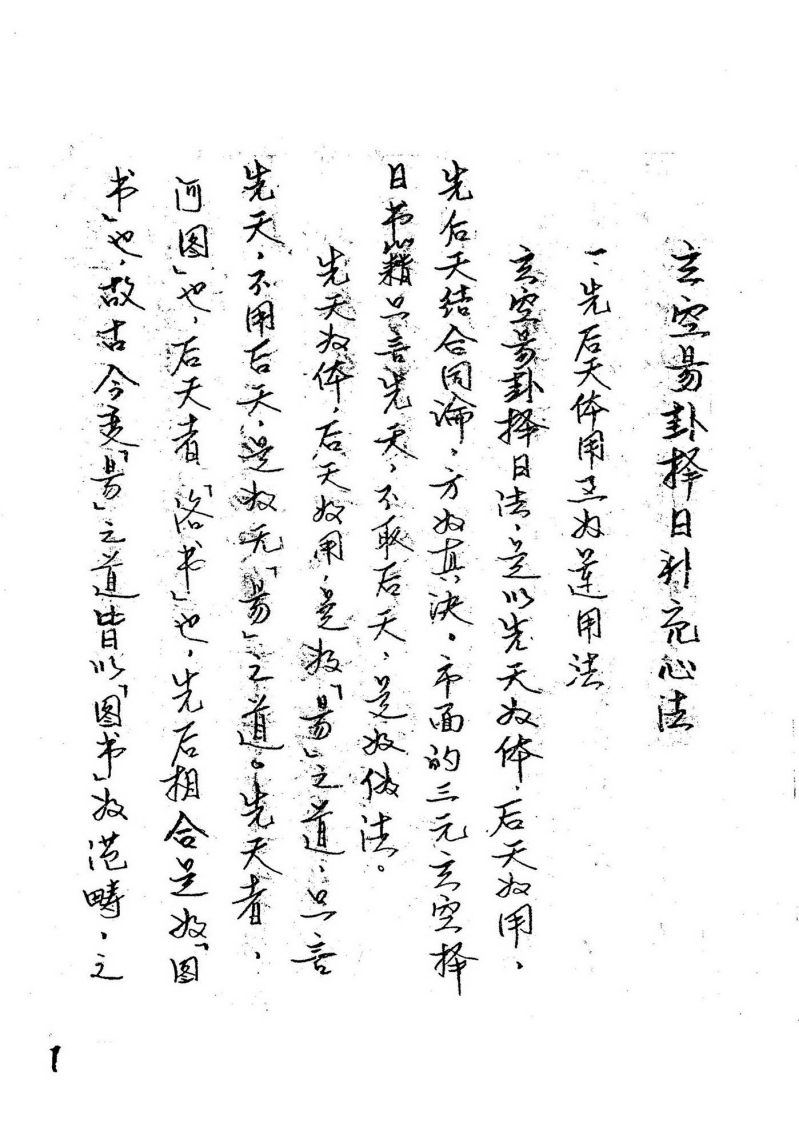 玄空易卦择日利宅心法
一、先后天体用五为运用法
玄空易卦择日法，是以先天为体，后天为用，
先后天结合同论，方为真决。市面的三元玄空择
日书籍只言先天，不取后天，是为伪法。
先天为体，后天为用，是为「易」之道，只言
先天，不用后天，是为无「易」之道。先天者，
河图」也，后天者「洛书」也，先后相合是为「图
书」也，故古今变「易」之道皆以「图书」为范畴，之
1